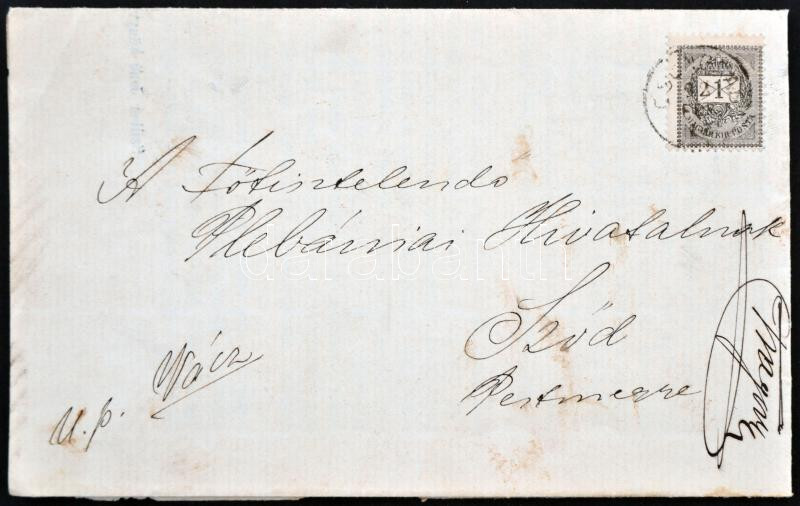 1
MAGYAR KIR. POSTA
A Főtisztelendő
Plebániai Hivatalnak
Sződ
Pestmegye
u. p. Vácz
darabanth